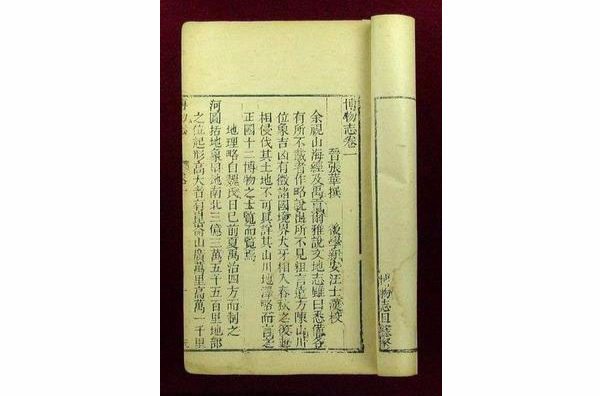 博物志目錄終
博物志卷一
晉張華撰　新安汪士漢校
余視山海經及禹貢爾雅說文地志雖曰悉備各
有所不載者作略說出所不見粗言遠方陳山川
位象吉凶有徵諸國境界犬牙相入春秋之後並
相侵伐其土地不可具詳其山川地澤略而言之
正國十二博物之士覽而鑒焉
地理略自魏氏目已前夏禹治四方而制之
河圖括地象曰地南北三億三萬五千五百里地部
之位起形高大者有崑崙山廣萬里高萬一千里